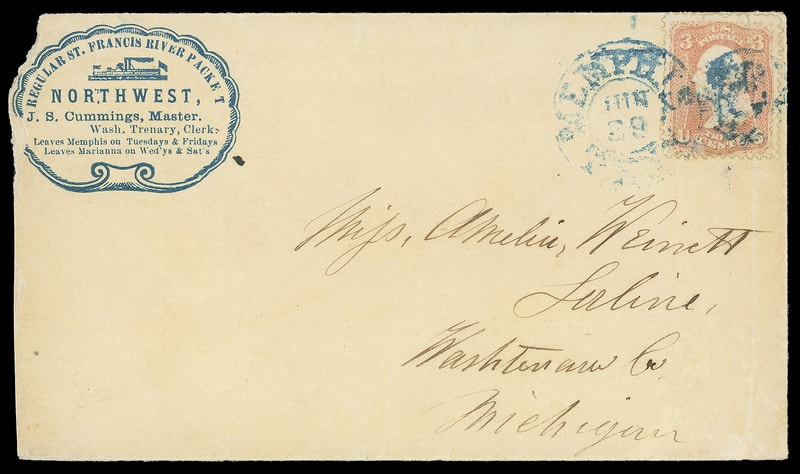 REGULAR ST. FRANCIS RIVER PACKET
NORTHWEST,
J. S. Cummings, Master.
Wash. Trenary, Clerk.
Leaves Memphis on Tuesdays & Fridays
Leaves Marianna on Wed'ys & Sat's
MEMPHIS
JUN
29
3 POSTAGE 3
U S
Miss, Amelia,
Saline,
Washtenaw Co
Michigan